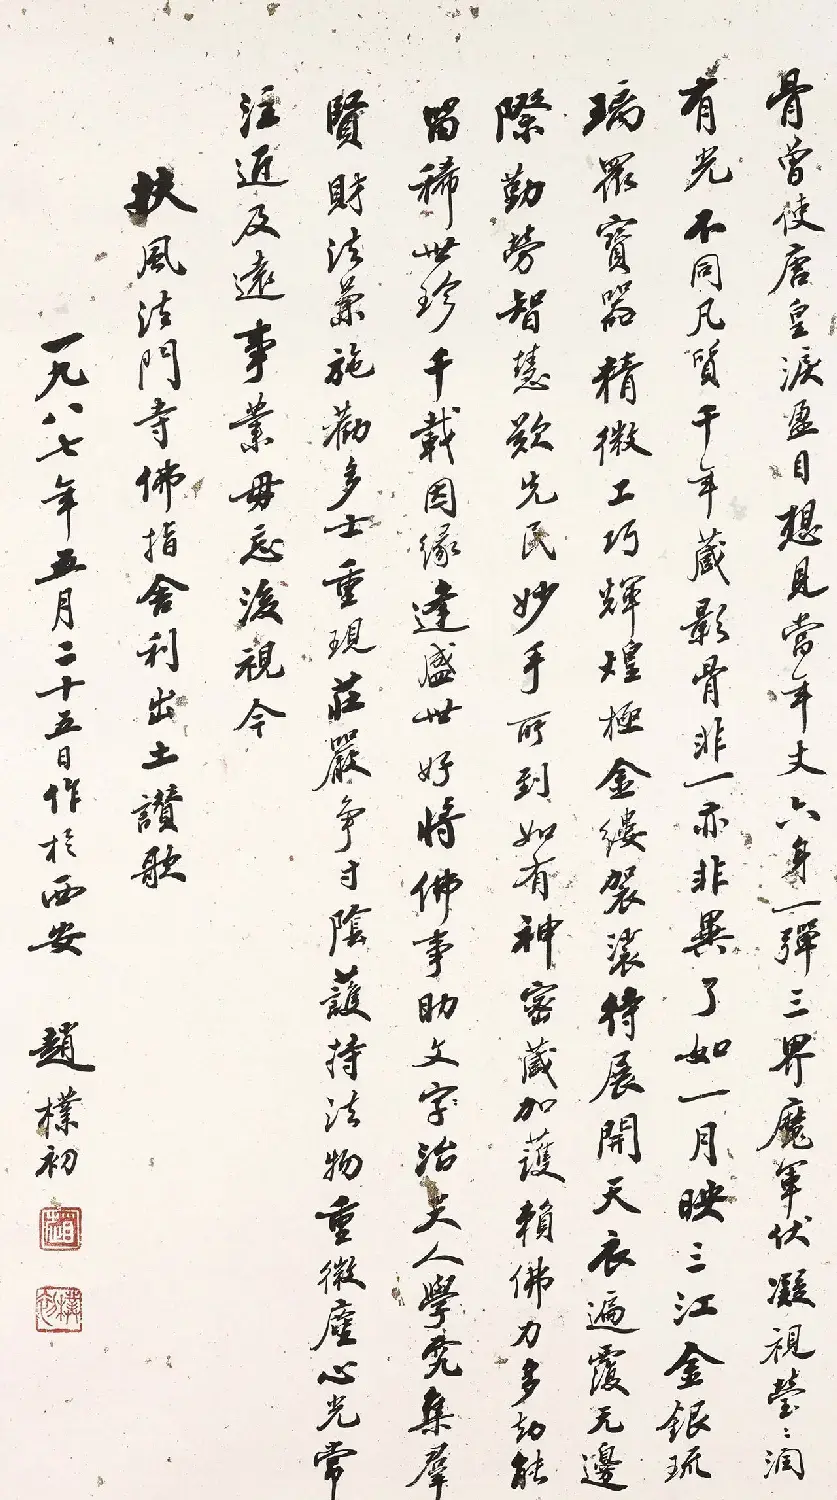 骨曾使唐皇淚盈目想見當年丈六身一彈三界魔軍伏凝視瑩〻潤
有光不同凡質千年藏影骨非一亦非異了如一月映三江金銀琉
璃眾寶器精微工巧輝煌極金縷袈裟特展開天衣遍覆无邊
際勤勞智慧歎先民妙手所到如有神密藏加護賴佛力多劫能
留稀世珍千載因緣逢盛世好將佛事助文字治天人學究集羣
賢財法兼施勸多士重現莊嚴爭寸陰護持法物重微塵心光常
注近及遠事業毋忘後視今
扶風法門寺佛指舍利出土讚歌
一九八七年五月二十五日作於西安 趙樸初
趙
樸初